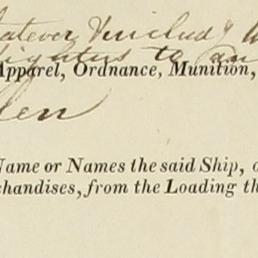 atever
ighters to an
Apparel, Ordnance, Munition,
en
Name or Names the said Ship, o
chandises, from the Loading th